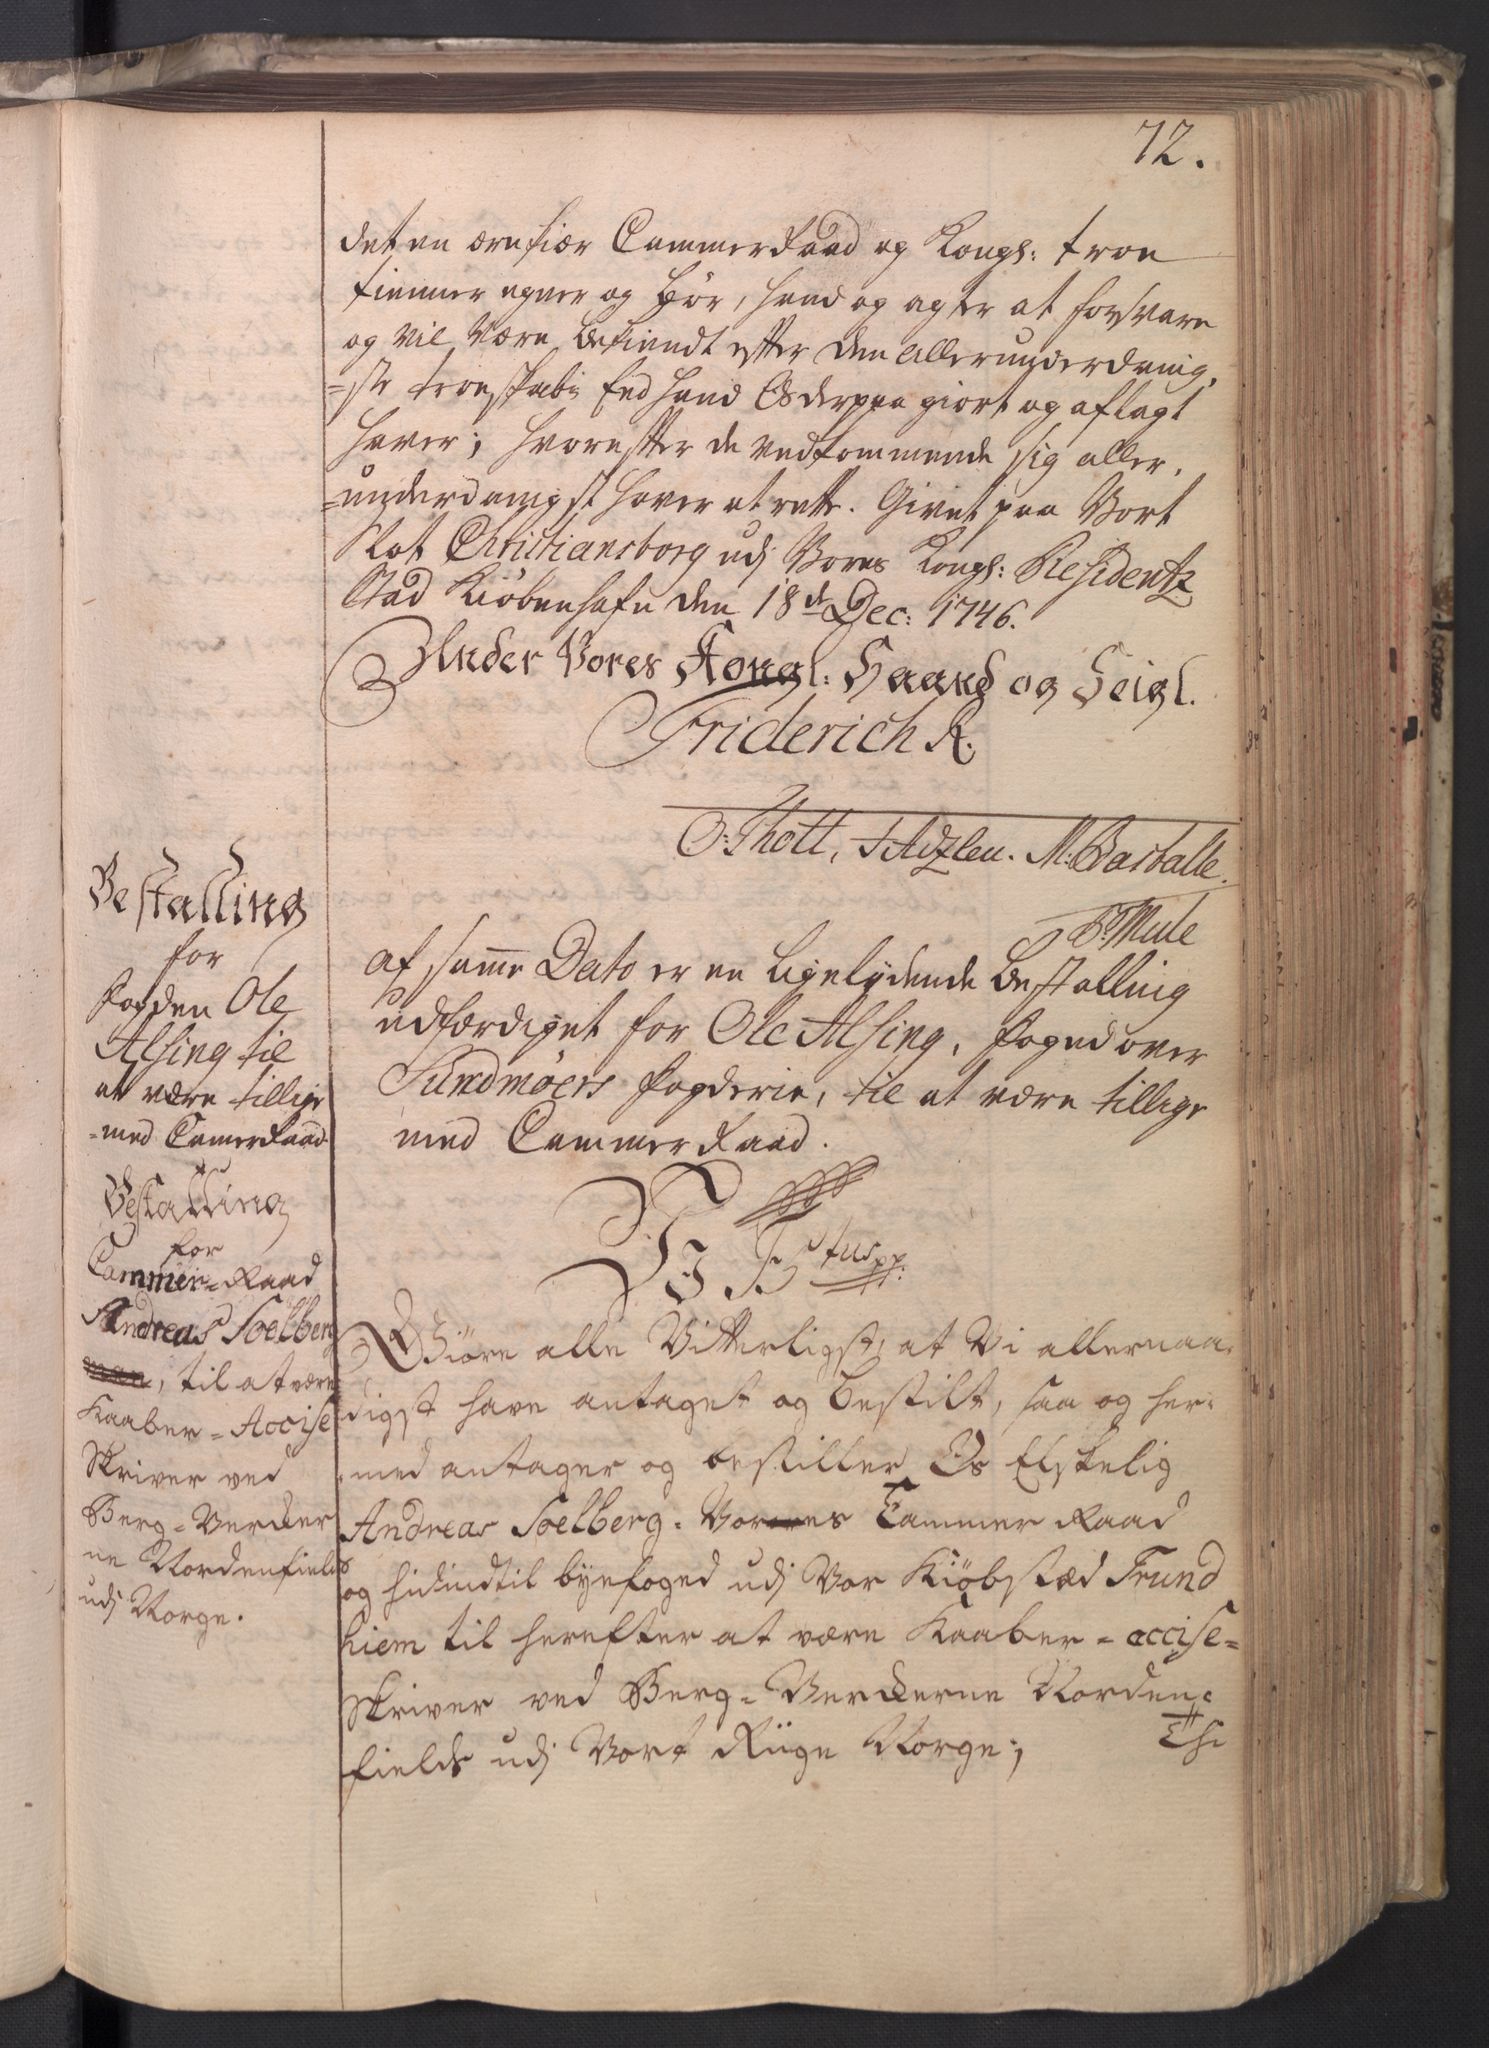 72.
det en ærekiær CammerRaad og Kongl: troe
tienner egner og bør, hand og agter at forsvare
og vil være bekiendt efter den allerunderdanig,
=ste troeskabs Eed hand Os derpaa giort og aflagt
haver; hvorefter de vedkommende sig aller,
=underdanigst haver at rette. Givet paa Vort
Slot Christiansborg udj Vores Kongl: Residentz
Stad Kiöbenhafn den 18de Dec: 1746.
Under Vores Kongl: Haand og Seigl.
Friderich R.
O: Thott, M: Barballe.
P: Mule
Bestalling
for
fogden Ole
Alsing til
at være tillige
=med CamerRaad
af samme Dato er en ligelydende Bestalling
udfærdiget for Ole Alsing, foged over
Sundmøers fogderie, til at være tillige
med CammerRaad.
Bestalling
for
Cammer=Raad
Andreas Soelberg
, til at være
Kaaber=Accise
Skriver ved
Berg=Vercker
ne Nordenfields
udj Norge.
V F 5tus pp:
Giöre alle Vitterligst, at Vi allernaa,
digst have antaget og bestilt, saa og her,
=med antager og bestiller Os Elskelig
Andreas Soelberg, Vores Cammer Raad
og hidindtil byefoged udj Vor Kiöbstæd Trund
hiem til herefter at være Kaaber=accise=
skriver ved Berg=Verckerne Norden,
fields udj Vort Riige Norge;
Thi